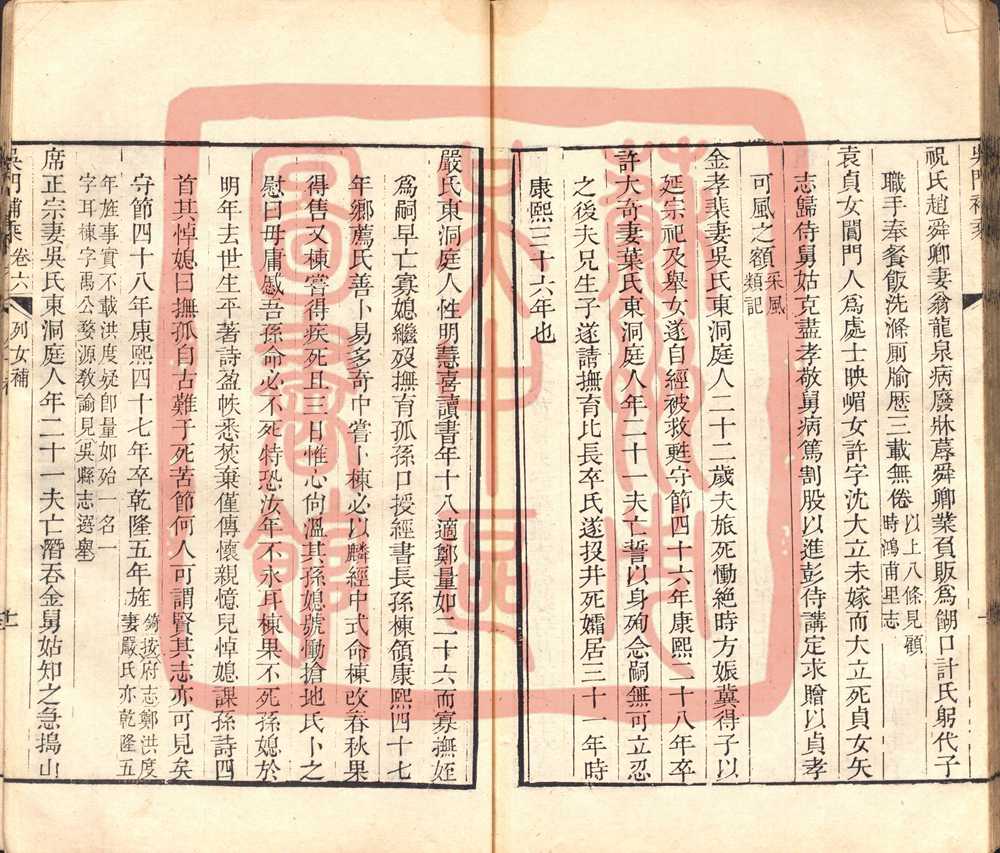 吳門補乘
祝氏趙舜卿妻翁龍泉病廢牀蓐舜卿業負販爲餬口計氏躬代子
職手奉餐飯洗滌厠牏歴三載無倦以上八條見顧
時鴻甫里志
袁貞女閶門人爲處士映嵋女許字沈大立未嫁而大立死貞女矢
志歸侍舅姑克盡孝敬舅病篤割股以進彭侍講定求贈以貞孝
可風之額采風
類記
金孝棐妻吳氏東洞庭人二十二歲夫旅死慟絶時方娠冀得子以
延宗祀及舉女遂自經被救甦守節四十六年康熙二十八年卒
許大奇妻葉氏東洞庭人年二十一夫亡誓以身殉念嗣無可立忍
之後夫兄生子遂請撫育比長卒氏遂投井死孀居三十一年時
康熙三十六年也
嚴氏東洞庭人性明慧喜讀書年十八適鄭量如二十六而寡撫姪
爲嗣早亡寡媳繼歿撫育孤孫口授經書長孫棟領康熙四十七
年鄉薦氏善卜易多奇中嘗卜棟必以麟經中式命棟改春秋果
得售又棟嘗得疾死且三日惟心尙溫其孫媳號慟搶地氏卜之
慰曰毋庸慼吾孫命必不死特恐汝年不永耳棟果不死孫媳於
明年去世生平著詩盈帙悉焚棄僅傳懷親憶兒悼媳課孫詩四
首其悼媳曰撫孤自古難于死苦節何人可謂賢其志亦可見矣
守節四十八年康熙四十七年卒乾隆五年旌錡按府志鄭洪度
妻嚴氏亦乾隆五
年旌事實不載洪度疑卽量如殆一名一
字耳棟字禹公婺源敎諭見吳縣志選舉
席正宗妻吳氏東洞庭人年二十一夫亡潛吞金舅姑知之急搗山
吳門補乘 卷六 列女補 十一